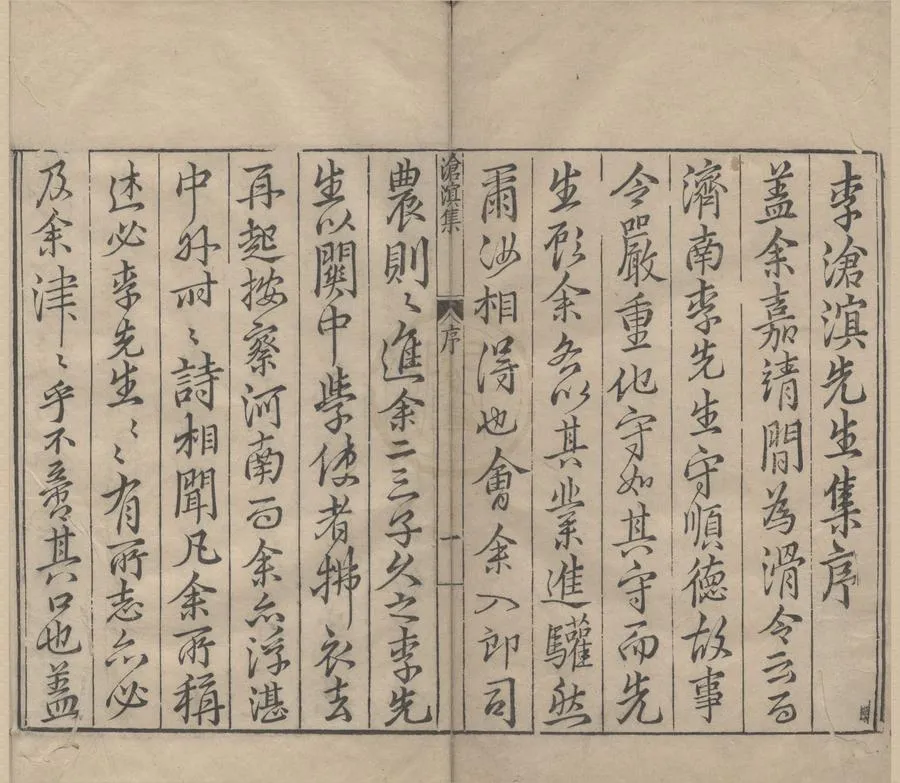 李滄溟先生集序
蓋余嘉靖間為滑令云而
濟南李先生守順德故事
令嚴重他守如其守而先
生顧余各以其業進驩然
爾汝相得也會余入郎司
滄溟集
序
一
農則〻進余二三子久之李先
生以關中學使者拂衣去
再起按察河南而余亦浮湛
中外時〻詩相聞凡余所稱
述必李先生〻〻有所志亦必
及余津〻乎不啻其口也蓋